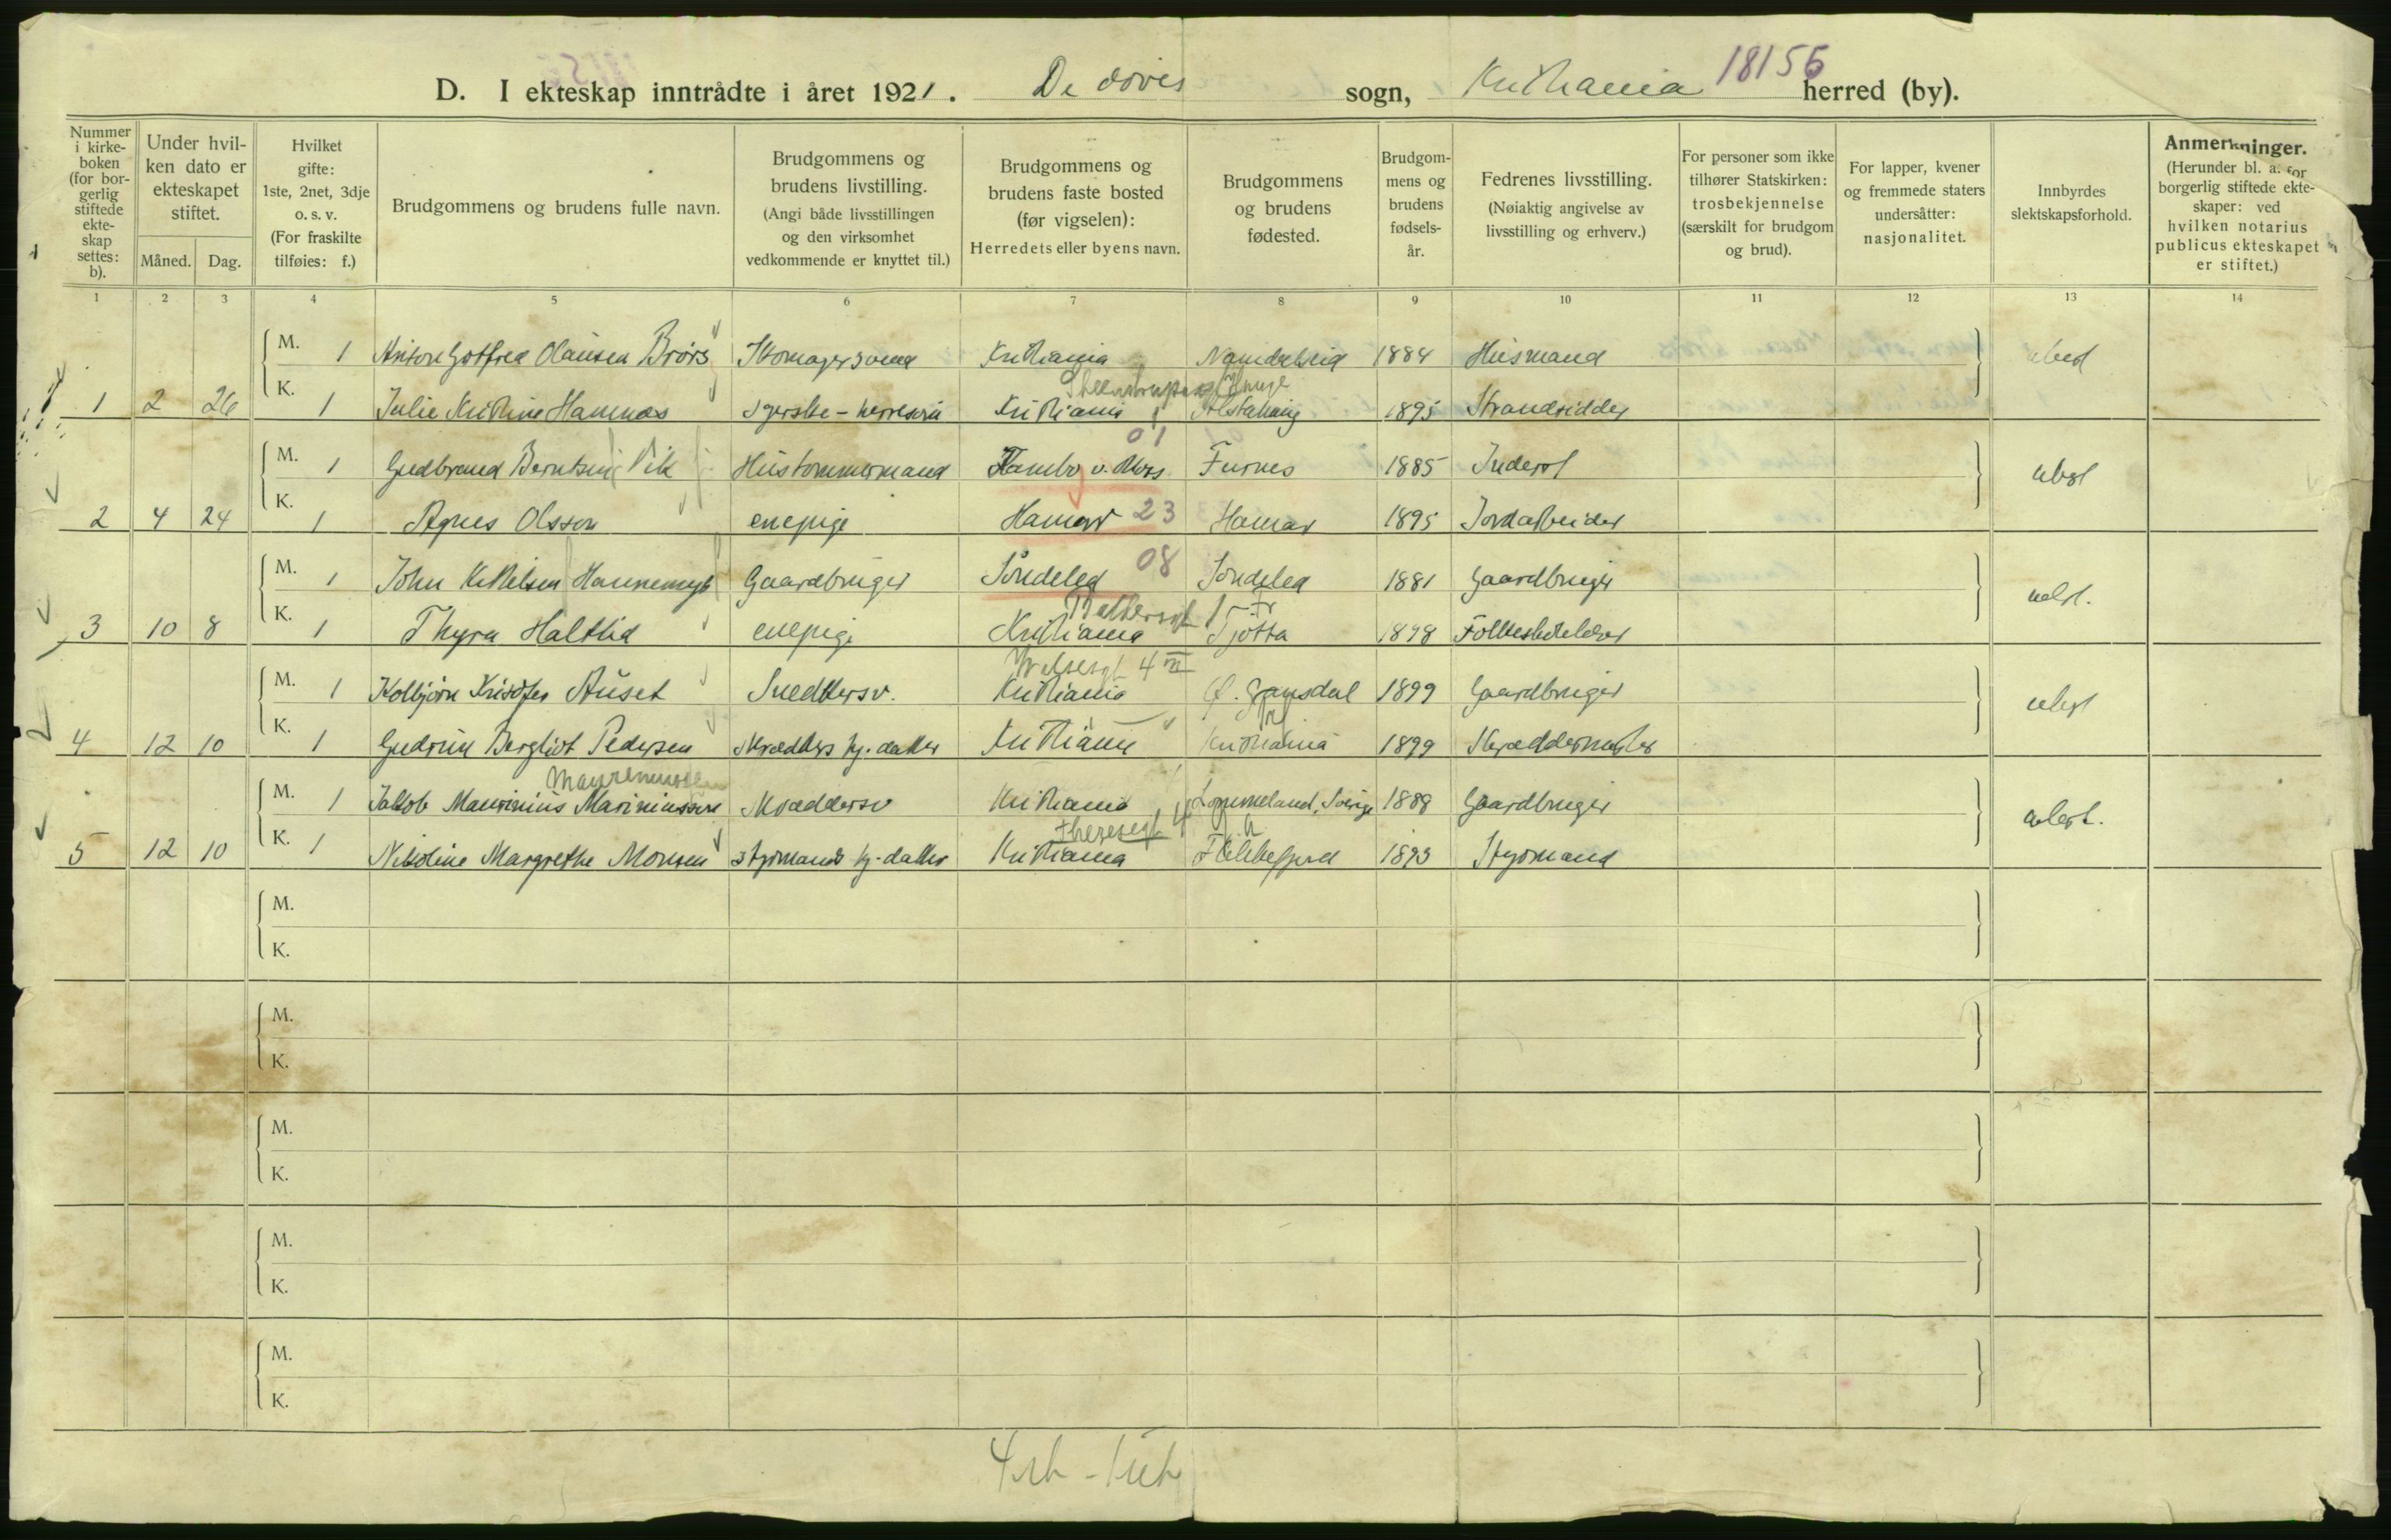 18156
D. I ekteskap inntrådte i året 1921. De døves sogn, Kristiania herred (by).
Nummer i kirkeboken (for borgerlig stiftede ekteskap settes: b).
Under hvilken dato er ekteskapet stiftet.
Måned. Dag.
Hvilket gifte: 1ste, 2net, 3dje o. s. v. (For fraskilte tilføies: f.)
Brudgommens og brudens fulle navn.
Brudgommens og brudens livstilling. (Angi både livsstillingen og den virksomhet vedkommende er knyttet til.)
Brudgommens og brudens faste bosted (før vigselen): Herredets eller byens navn.
Brudgommens og brudens fødested.
Brudgommens og brudens fødselsår.
Fedrenes livsstilling. (Nøiaktig angivelse av livsstilling og erhverv.)
For personer som ikke tilhører Statskirken: trosbekjennelse (særskilt for brudgom og brud).
For lapper, kvener og fremmede staters undersåtter: nasjonalitet.
Innbyrdes slektskapsforhold.
Anmerkninger. (Herunder bl. a. for borgerlig stiftede ekteskaper: ved hvilken notarius publicus ekteskapet er stiftet.)
1 2 3 4 5 6 7 8 9 10 11 12 13 14
M. 1 Anton Gotfred Olausen Brørs Skomagersvend Kristiania Namdalseid 1884 Husmand ubesl
1 2 26 K. 1 Julie Kristine Hamnes syerske - Kristiania Alstahaug 1895 Strandsidder
01
M. 1 Gudbrand Berntsen Vik Hustømmermand Kambo v. Moss Furnes 1885 Inderst ubesl
2 4 24 K. 1 Agnes Olsson enepige Hamar 23 Hamar 1895 Jordarbeider
M. 1 John Kittelsen Hannemyr Gaardbruger Søndeled 08 Søndeled 1881 Gaardbruger ubesl.
3 10 8 K. 1 Thyra Haltlid enepige Kristiania Tjøtta 1898
4 III
M. 1 Kolbjørn Kristofer Auset Snedkersv. Kristiania 1899 Gaardbruger ubesl
4 12 10 K. 1 Gudrun Bergliot Pedersen Skrædders hj. datter Kristiania Kristiania 1899 Skræddermester
M. 1 Jakob Maurinius Mariniussen Skræddersv Kristiania Lommeland, Sverige 1888 Gaardbruger ubesl.
Theresesgt 4
5 12 10 K. 1 Nikoline Margrethe Monsen styrmands hj. datter Kristiania Flekkefjord 1893 Styrmand
M.
K.
M.
K.
M.
K.
M.
K.
M.
K.